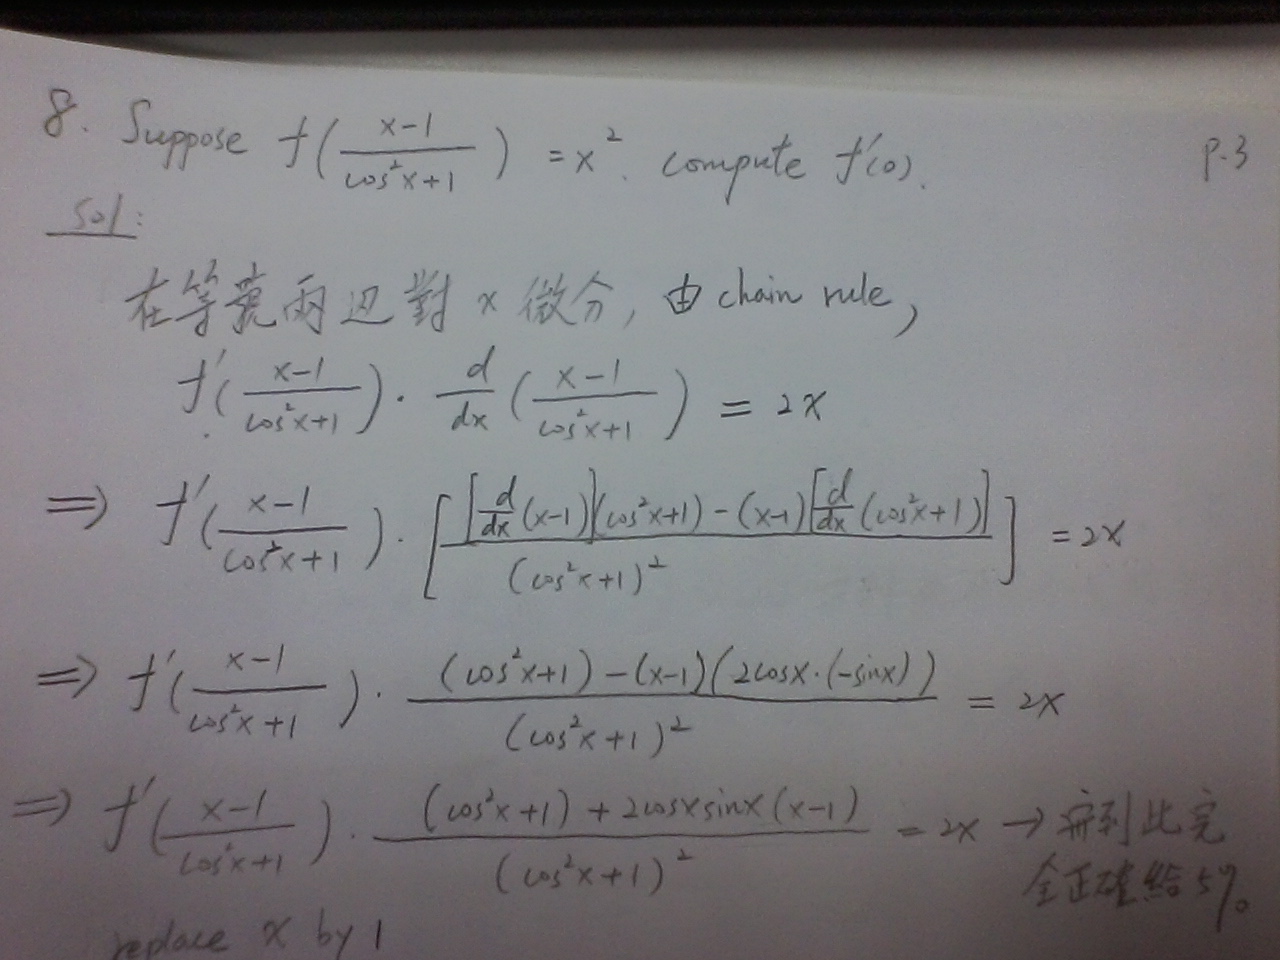 8. Suppose f((x-1)/(cos²x+1)) = x². compute f'(0).
p.3
sol:
在等號兩边對 x 微分, 由 chain rule,
f'((x-1)/(cos²x+1)) · d/dx ((x-1)/(cos²x+1)) = 2x
⇒ f'((x-1)/(cos²x+1)) · [ [d/dx (x-1)](cos²x+1) - (x-1)[d/dx (cos²x+1)] / (cos²x+1)² ] = 2x
⇒ f'((x-1)/(cos²x+1)) · ((cos²x+1) - (x-1)(2cosx·(-sinx))) / (cos²x+1)² = 2x
⇒ f'((x-1)/(cos²x+1)) · ((cos²x+1) + 2cosxsinx(x-1)) / (cos²x+1)² = 2x → 算到此完
全正確給5%。
replace x by 1